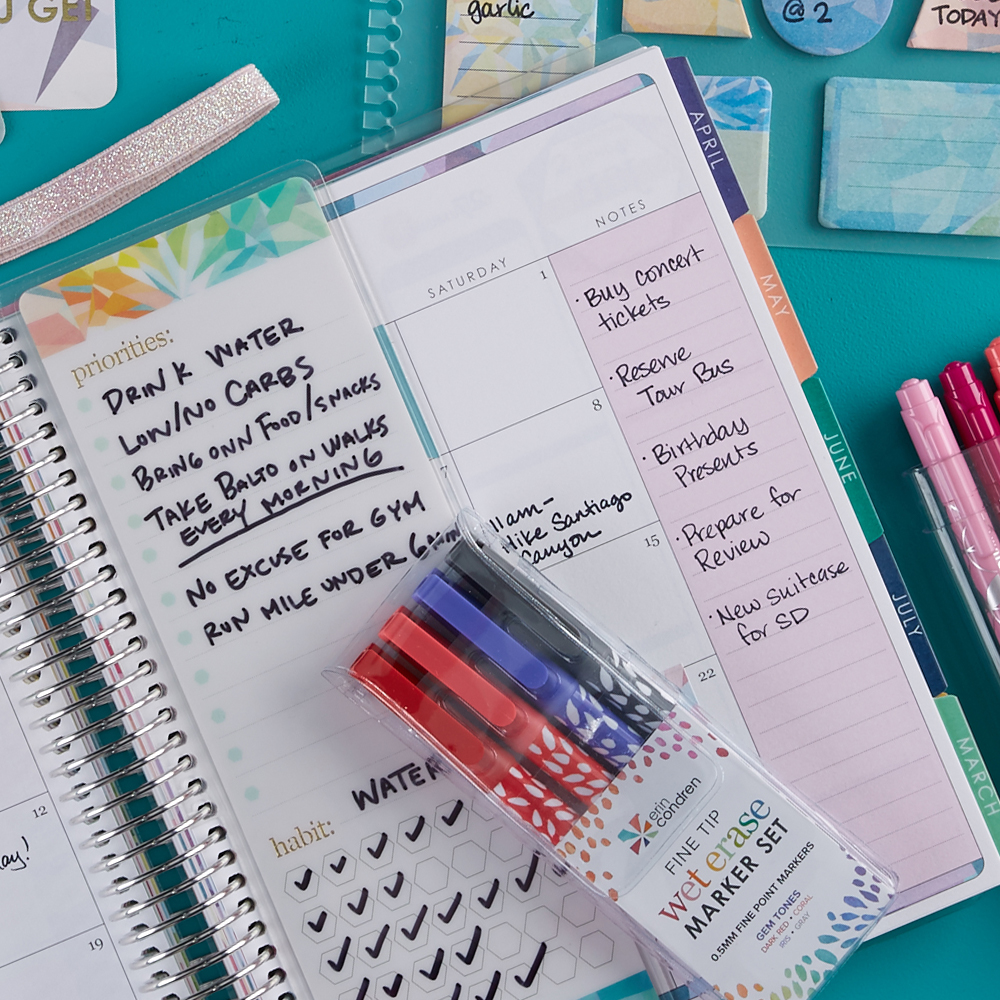 U GET
garlic
@ 2
TODAY
priorities:
DRINK WATER
LOW/NO CARBS
BRING OWN FOOD/SNACKS
TAKE BALTO ON WALKS
EVERY MORNING
NO EXCUSE FOR GYM
RUN MILE UNDER
WATER
habit:
SATURDAY
NOTES
1
7
8
15
22
11am-
Hike Santiago
Canyon
· Buy concert
tickets
· Reserve
Tour Bus
· Birthday
Presents
· Prepare for
Review
· New suitcase
for SD
APRIL
MAY
JUNE
JULY
MARCH
12
19
erin
condren
FINE TIP
wet erase
MARKER SET
0.5MM FINE POINT MARKERS
GEM TONES
DARK RED • CORAL
IRIS • GRAY